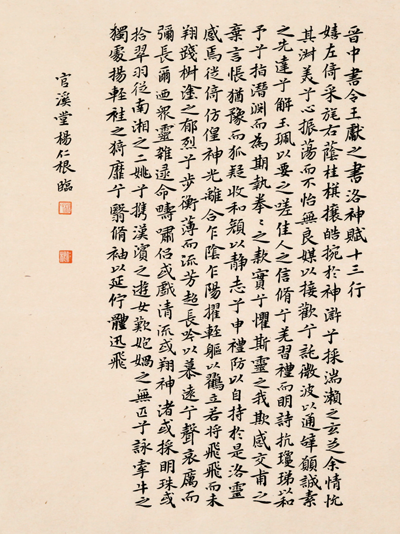 晉中書令王獻之書洛神賦十三行
嬉左倚采旄右蔭桂旗攘皓捥於神滸兮採湍瀨之玄芝余情忱
其淑美兮心振蕩而不怡無良媒以接歡兮託微波以通辭願誠素
之先達兮解玉珮以要之嗟佳人之信脩兮羌習禮而明詩抗瓊珶以和
予兮指潛淵而為期執拳〻之款實兮懼斯靈之我欺感交甫之
棄言悵猶豫而狐疑收和顏以靜志兮申禮防以自持於是洛靈
感焉徙倚仿偟神光離合乍陰乍陽擢輕軀以鶴立若將飛飛而未
翔踐椒塗之郁烈兮步衡薄而流芳超長吟以慕遠兮聲哀厲而
彌長爾迺眾靈雜遝命疇嘯侶或戲清流或翔神渚或採明珠或
拾翠羽從南湘之二姚兮攜漢濱之遊女歎匏媧之無匹兮詠牽牛之
獨處揚輕袿之猗靡兮翳脩袖以延佇體迅飛
官溪堂楊仁根臨